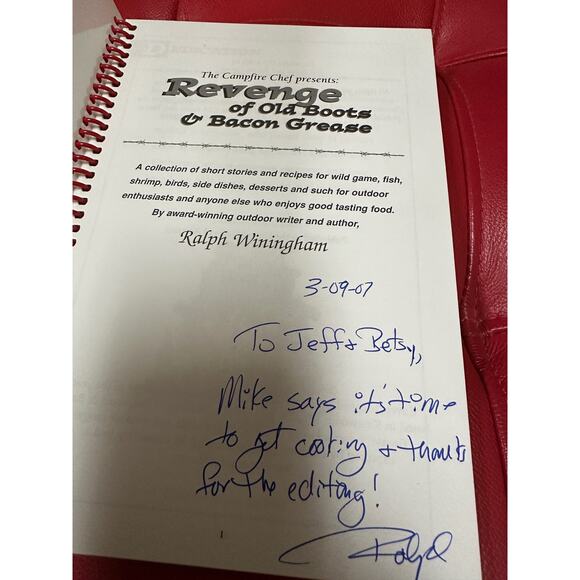 The Campfire Chef presents:
Revenge
of Old Boots
& Bacon Grease
A collection of short stories and recipes for wild game, fish,
shrimp, birds, side dishes, desserts and such for outdoor
enthusiasts and anyone else who enjoys good tasting food.
By award-winning outdoor writer and author,
Ralph Winingham
3-09-07
To Jeff & Betsy,
Mike says it's time
to get cooking & thanks
for the editing!
Ralph
1